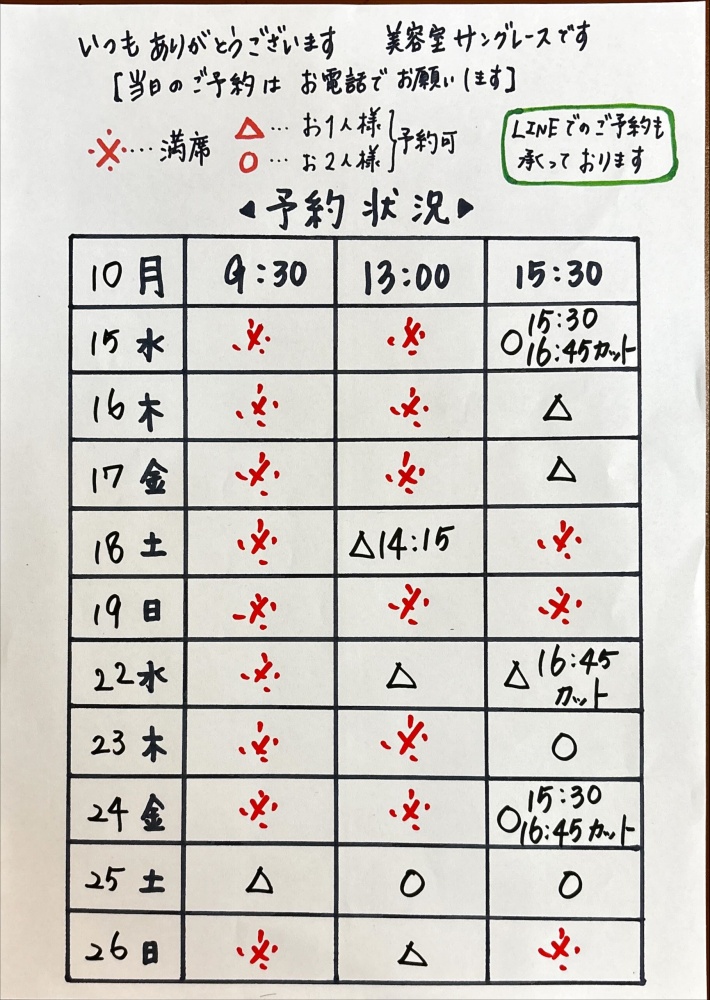 いつもありがとうございます 美容室サングレースです
[当日のご予約はお電話でお願いします]
※…満席
△…お1人様
○…お2人様
予約可
LINEでのご予約も
承っております
◀予約状況▶
10月 9:30 13:00 15:30
15水 ※ ※ ○15:30
16:45カット
16木 ※ ※ △
17金 ※ ※ △
18土 ※ △14:15 ※
19日 ※ ※ ※
22水 ※ △ △16:45
カット
23木 ※ ※ ○
24金 ※ ※ ○15:30
16:45カット
25土 △ ○ ○
26日 ※ △ ※